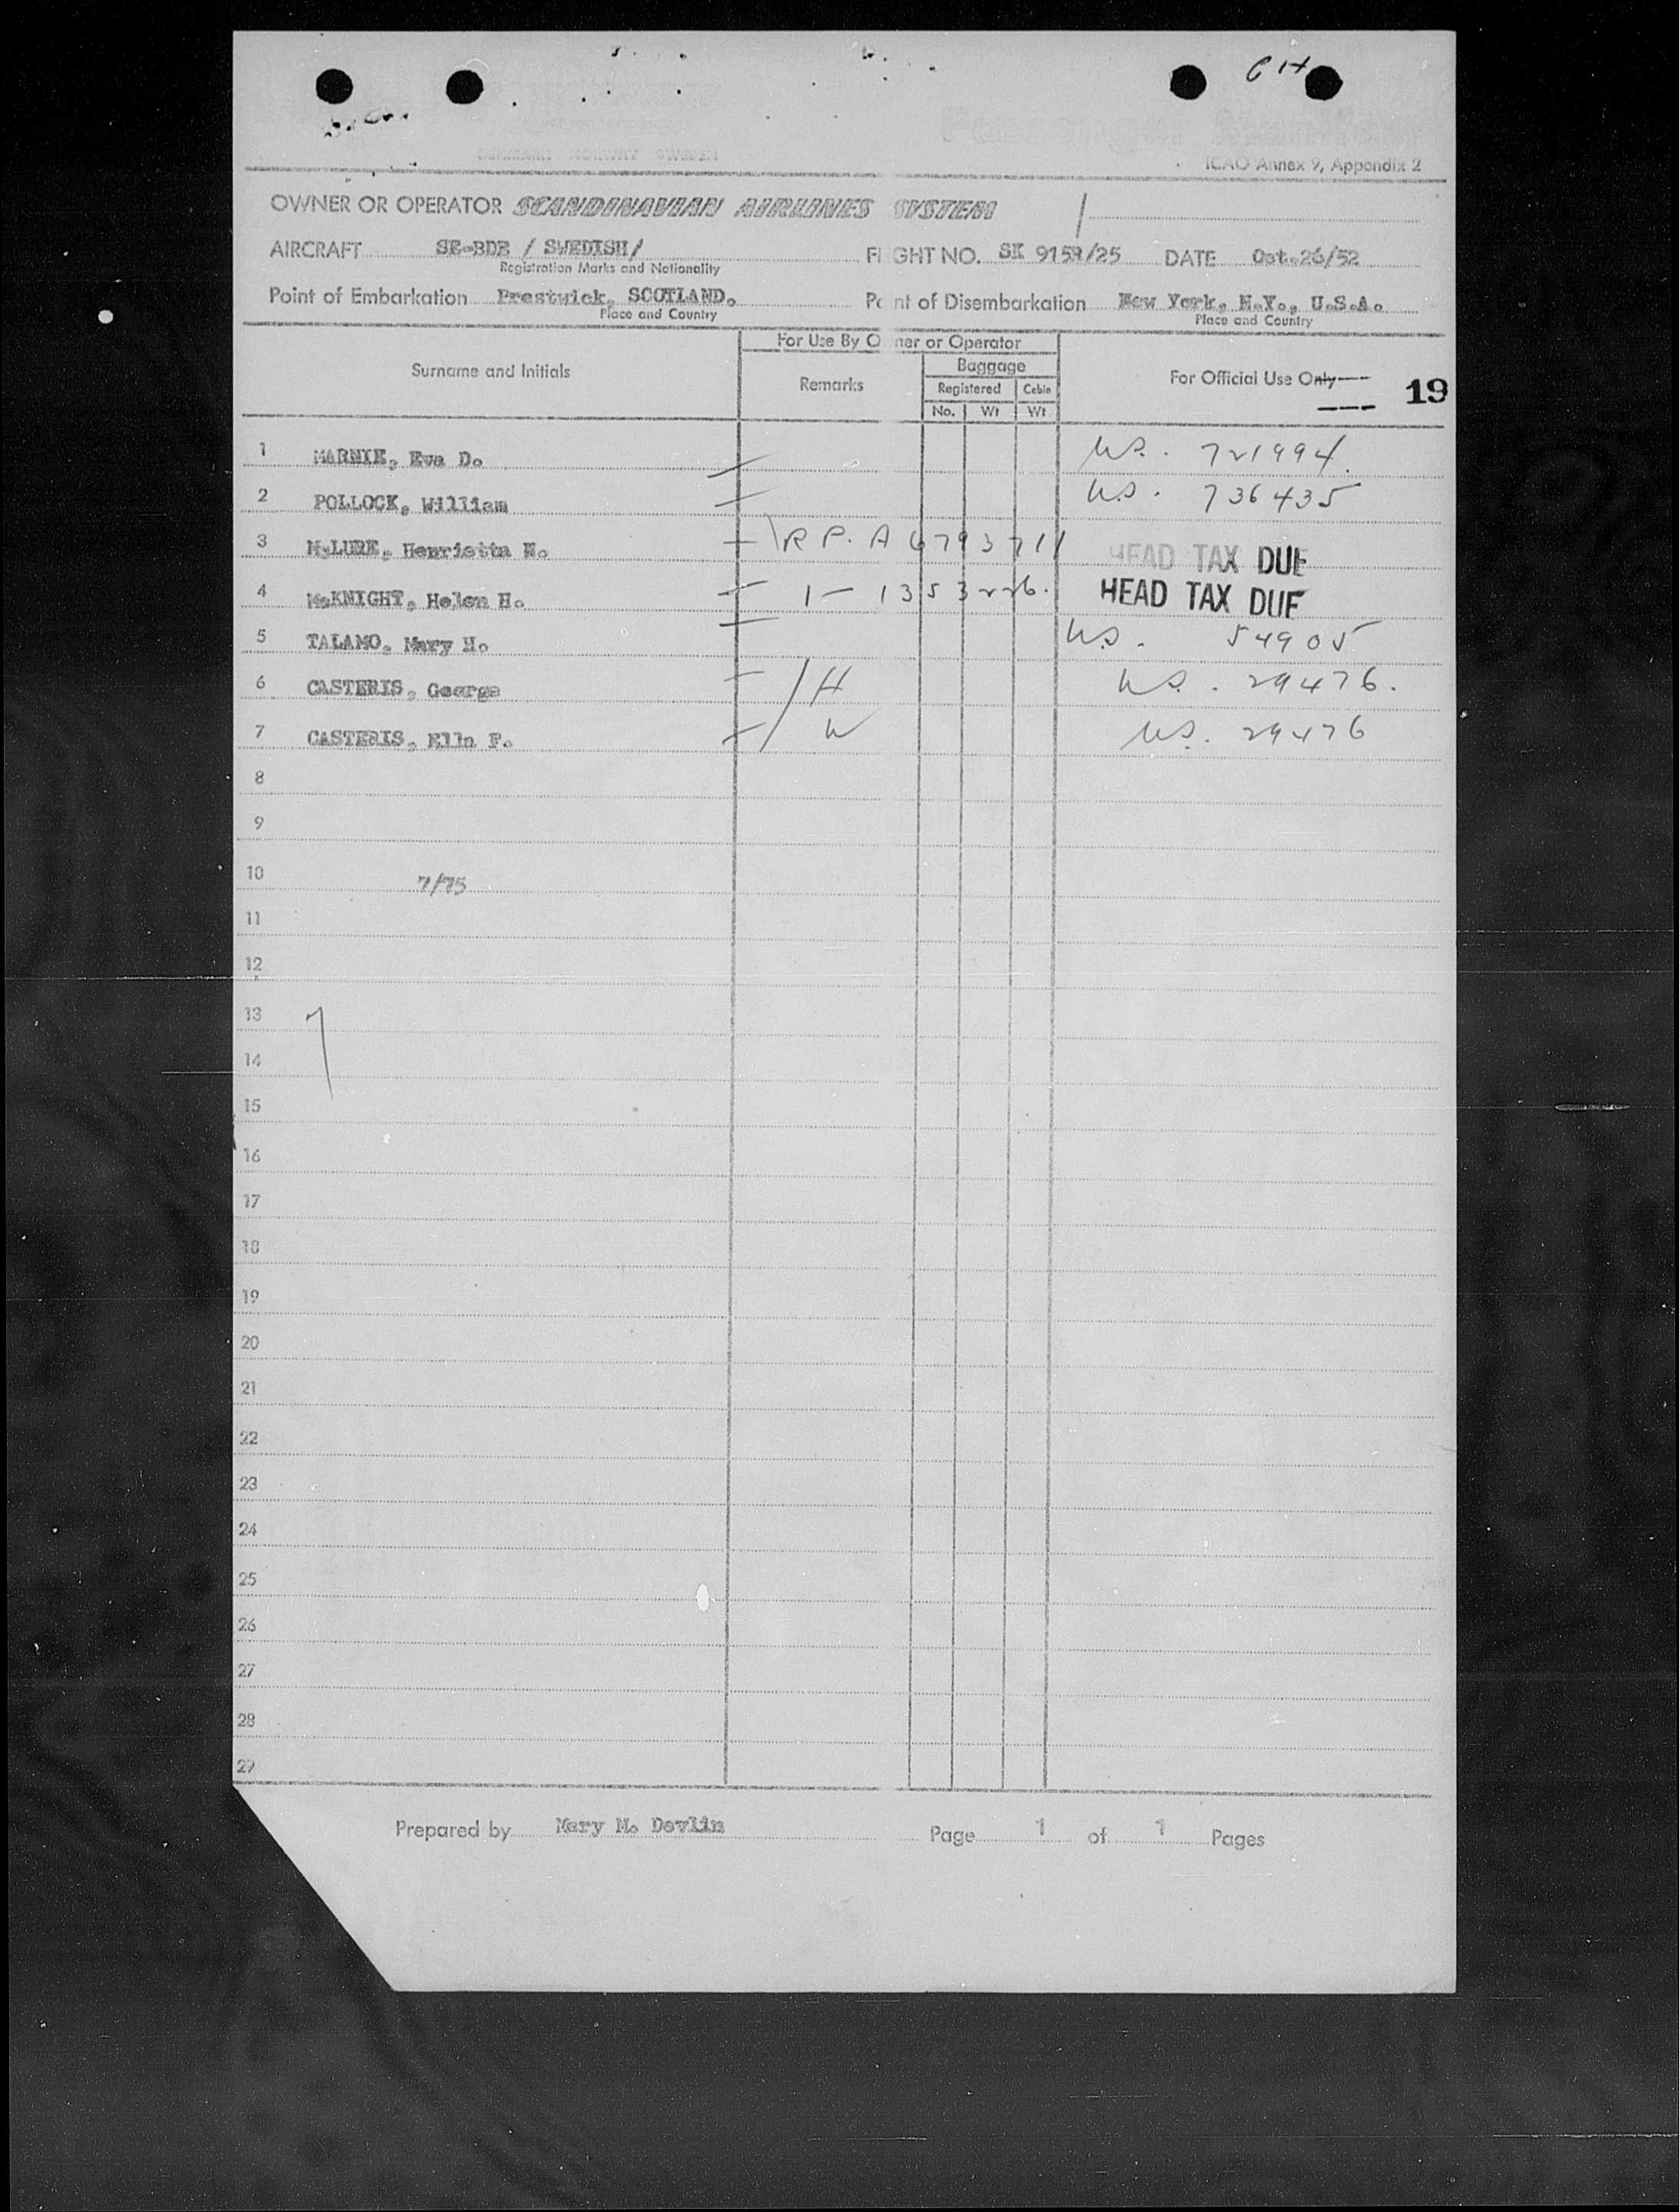 6H
DENMARK NORWAY SWEDEN
ICAO Annex 9, Appendix 2
OWNER OR OPERATOR SCANDINAVIAN AIRLINES SYSTEM
AIRCRAFT SE-BDE / SWEDISH/ FLIGHT NO. SK 915R/25 DATE Oct.26/52
Registration Marks and Nationality
Point of Embarkation Prestwick, SCOTLAND. Point of Disembarkation New York, N.Y., U.S.A.
Place and Country Place and Country
Surname and Initials For Use By Owner or Operator For Official Use Only 19
Remarks Baggage
Registered Cabin
No. Wt Wt
1 MARNIE, Eva D. US. 721994.
2 POLLOCK, William US. 736435
3 McLURE, Henrietta N. R P. A 6793711 HEAD TAX DUE
4 McKNIGHT, Helen H. 1 - 1353226. HEAD TAX DUE
5 TALAMO, Mary H. US. 54905
6 CASTERIS, George H US. 29476.
7 CASTERIS, Ella F. W US. 29476
8
9
10 7/75
11
12
13 7
14
15
16
17
18
19
20
21
22
23
24
25
26
27
28
29
Prepared by Mary M. Devlin Page 1 of 1 Pages